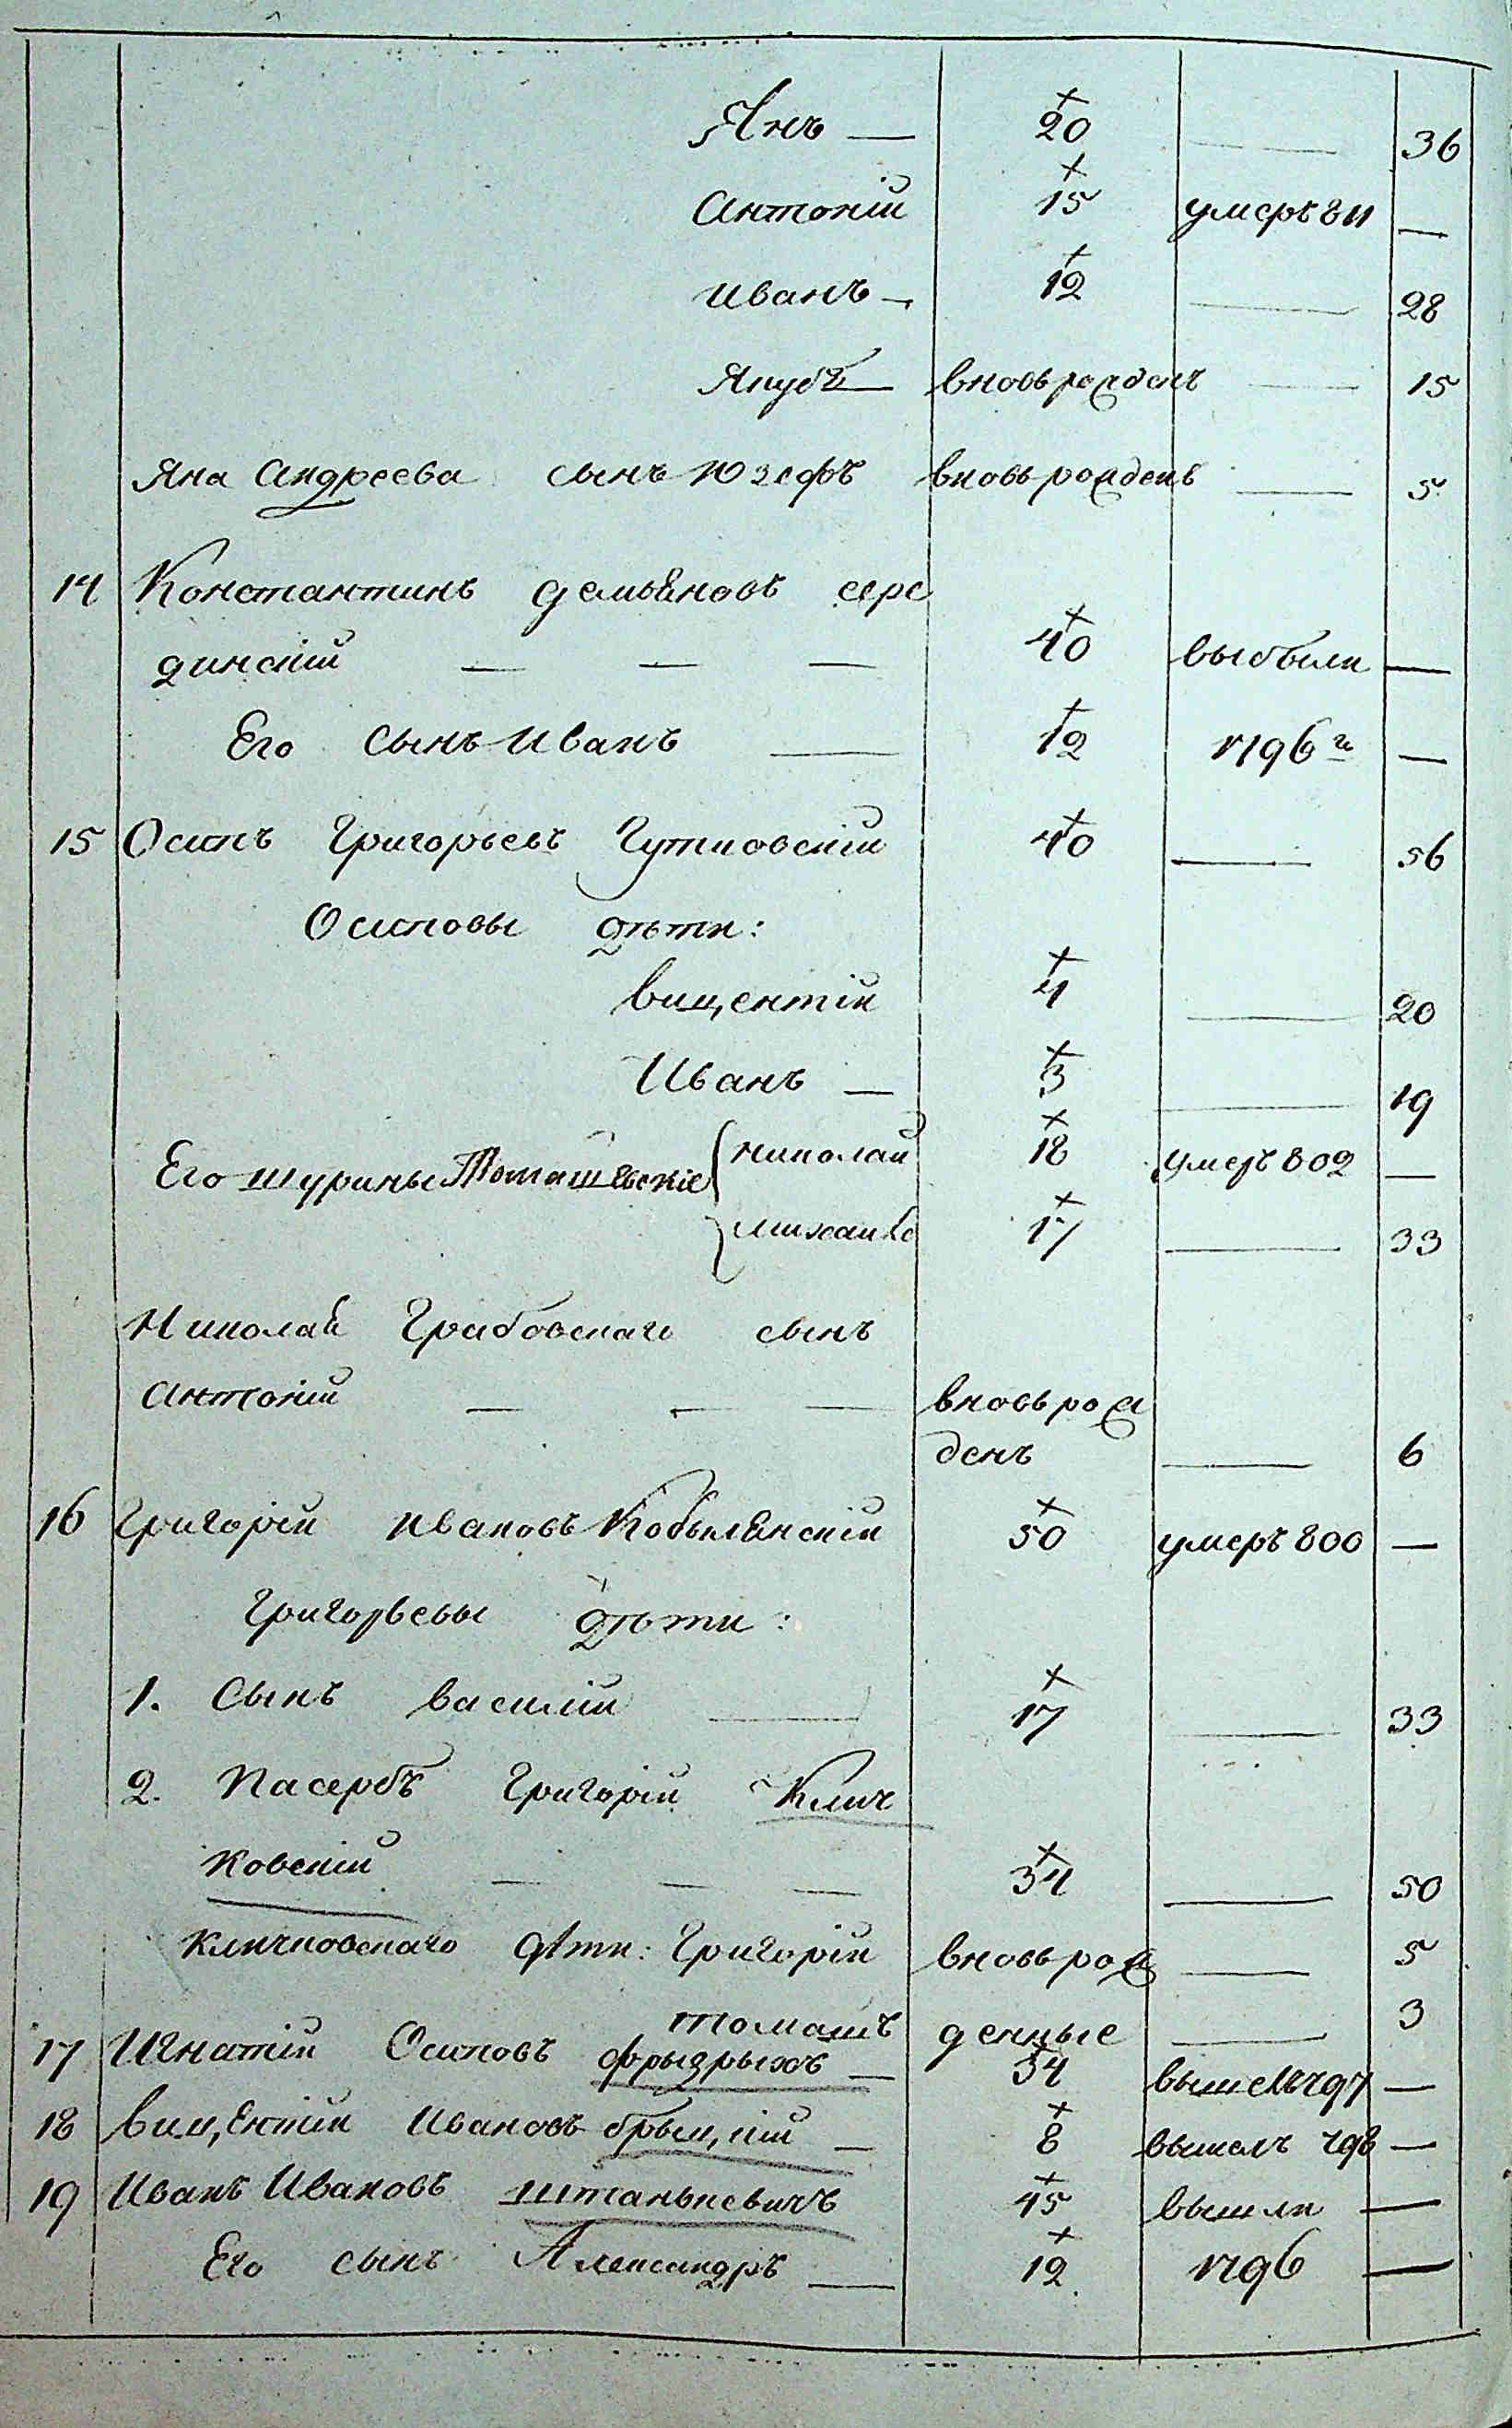 Янъ — 20 — 36
Антоній 15 умеръ 811 —
Иванъ — 12 — 28
Якубъ — вновь рожденъ — 15
Яна Андреева сынъ Юзефъ вновь рожденъ — 5
14 Константинъ Демьяновъ сере
динскій — — — 40 выбыли —
Его сынъ Иванъ — 12 1796 г —
15 Осипъ Григорьевъ Гутковскій 40 — 56
Осиповы дѣти:
Вицентій 4 — 20
Иванъ — 3 — 19
Его шурины Томашевскіе { Николай 18 умеръ 802 —
{ Михайло 17 — 33
Николай Грабовскаго сынъ
Антоній — — — вновь рож
денъ — 6
16 Григорій Ивановъ Кобылянскій 50 умеръ 800 —
Григорьевы дѣти:
1. Сынъ Василій — 17 — 33
2. Пасербъ Григорій Клич
ковскій — — — 34 — 50
Кличковскаго дѣти: Григорій вновь рож — 5
Томашъ денные — 3
17 Игнатій Осиповъ Фрыдрыхъ — 34 вышелъ 797 —
18 Вицентій Ивановъ Брыцкій — 8 вышелъ 798 —
19 Иванъ Ивановъ Штанькевичъ 45 вышли —
Его сынъ Александръ — 12 1796 —